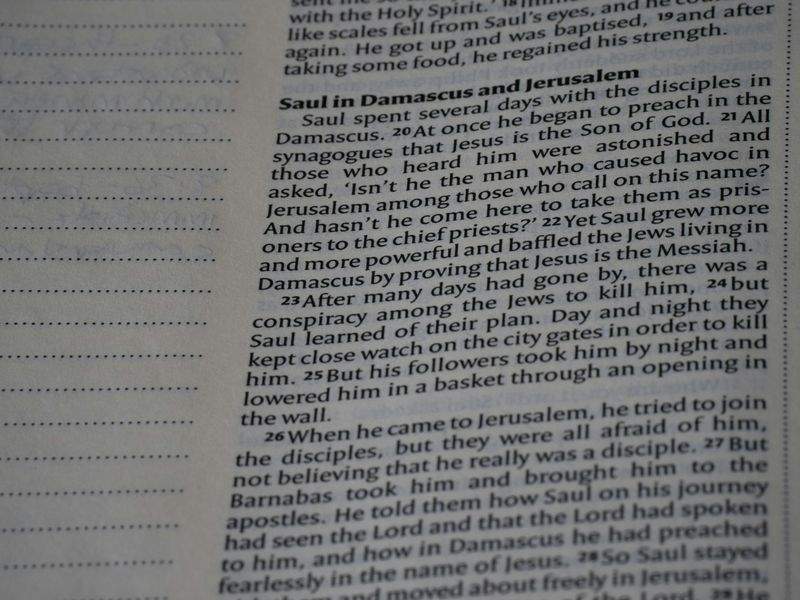 with the Holy Spirit.'
like scales fell from Saul's eyes, and he
again. He got up and was baptised, 19and after
taking some food, he regained his strength.
Saul in Damascus and Jerusalem
Saul spent several days with the disciples in
Damascus. 20At once he began to preach in the
synagogues that Jesus is the Son of God. 21All
those who heard him were astonished and
asked, 'Isn't he the man who caused havoc in
Jerusalem among those who call on this name?
And hasn't he come here to take them as pris-
oners to the chief priests?' 22Yet Saul grew more
and more powerful and baffled the Jews living in
Damascus by proving that Jesus is the Messiah.
23After many days had gone by, there was a
conspiracy among the Jews to kill him, 24but
Saul learned of their plan. Day and night they
kept close watch on the city gates in order to kill
him. 25But his followers took him by night and
lowered him in a basket through an opening in
the wall.
26When he came to Jerusalem, he tried to join
the disciples, but they were all afraid of him,
not believing that he really was a disciple. 27But
Barnabas took him and brought him to the
apostles. He told them how Saul on his journey
had seen the Lord and that the Lord had spoken
to him, and how in Damascus he had preached
fearlessly in the name of Jesus. 28So Saul stayed
and moved about freely in Jerusalem,
of the Lord. 29He